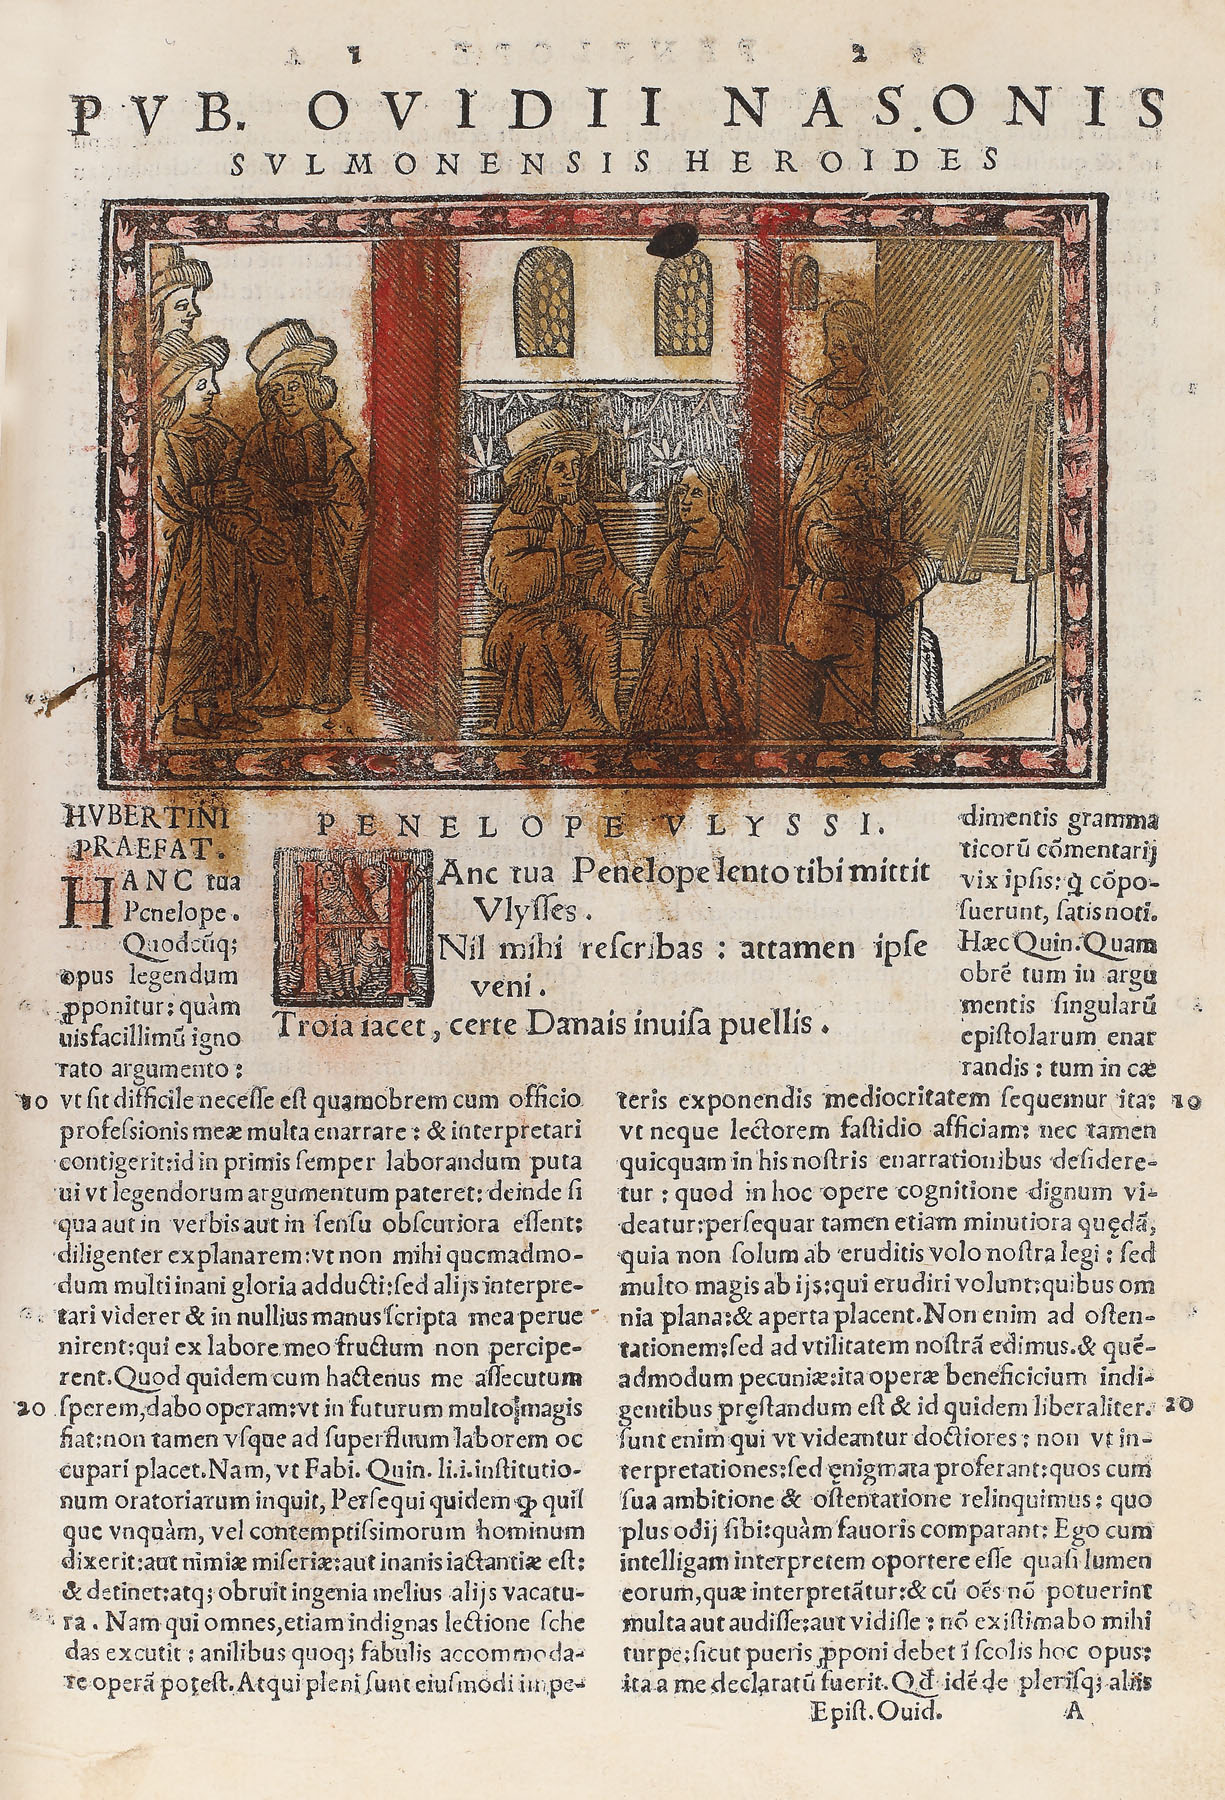 PVB. OVIDII NASONIS
SVLMONENSIS HEROIDES
HVBERTINI
PRAEFAT.
HANC tua
Penelope.
Quodcũq;
opus legendum
ꝓponitur: quàm
uisfacillimũ igno
rato argumento:
PENELOPE VLYSSI.
HAnc tua Penelope lento tibi mittit
Vlysses.
Nil mihi rescribas : attamen ipse
veni.
Troia iacet, certe Danais inuisa puellis.
10 vt sit difficile necesse est quamobrem cum officio
professionis meæ multa enarrare: & interpretari
contigerit:id in primis semper laborandum puta
ui vt legendorum argumentum pateret: deinde si
qua aut in verbis aut in sensu obscuriora essent:
diligenter explanarem:vt non mihi quemadmo-
dum multi inani gloria adducti:sed alijs interpre-
tari viderer & in nullius manus scripta mea perue
nirent:qui ex labore meo fructum non percipe-
rent.Quod quidem cum hactenus me assecutum
20 sperem,dabo operam:vt in futurum multo magis
fiat:non tamen vsque ad superfluum laborem oc
cupari placet.Nam, vt Fabi. Quin. li.i.institutio-
num oratoriarum inquit, Persequi quidem ꝙ quis
que vnquàm, vel contemptissimorum hominum
dixerit:aut nimiæ miseriæ:aut inanis iactantiæ est:
& detinet:atq; obruit ingenia melius alijs vacatu-
ra. Nam qui omnes,etiam indignas lectione sche
das excutit: anilibus quoq; fabulis accommoda-
re operã potest.Atqui pleni sunt eiusmodi impe-
dimentis gramma
ticorũ cõmentarij
vix ipsis: q̃ cõpo-
suerunt, satis noti.
Hæc Quin.Quam
obrẽ tum in argu
mentis singularũ
epistolarum enar
randis: tum in cæ
teris exponendis mediocritatem sequemur ita: 10
vt neque lectorem fastidio afficiam: nec tamen
quicquam in his nostris enarrationibus desidere-
tur: quod in hoc opere cognitione dignum vi-
deatur:persequar tamen etiam minutiora quędã,
quia non solum ab eruditis volo nostra legi: sed
multo magis ab ijs:qui erudiri volunt:quibus om
nia plana:& aperta placent.Non enim ad osten-
tationem:sed ad vtilitatem nostrã edimus.& quẽ-
admodum pecuniæ:ita operæ beneficicium indi-
gentibus pręstandum est & id quidem liberaliter. 20
sunt enim qui vt videantur doctiores: non vt in-
terpretationes:sed ęnigmata proferant:quos cum
sua ambitione & ostentatione relinquimus: quo
plus odij sibi:quàm fauoris comparant: Ego cum
intelligam interpretem oportere esse quasi lumen
eorum,quæ interpretãtur:& cũ oẽs nõ potuerint
multa aut audisse:aut vidisse: nõ existimabo mihi
turpe:sicut pueris ꝓponi debet ĩ scolis hoc opus:
ita a me declaratũ fuerit. Qď idẽ de plerisq; aliis
Epist. Ouid. A